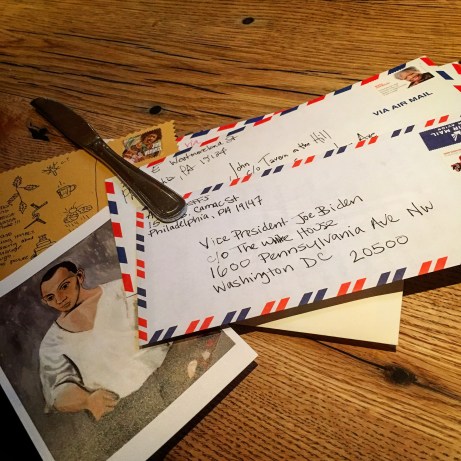 VIA AIR MAIL
E Westmoreland St
PA 19134
John
c/o Tavern on the Hill
Ave
Camac St.
Philadelphia, PA 19147
Vice President Joe Biden
c/o The White House
1600 Pennsylvania Ave NW
Washington DC 20500